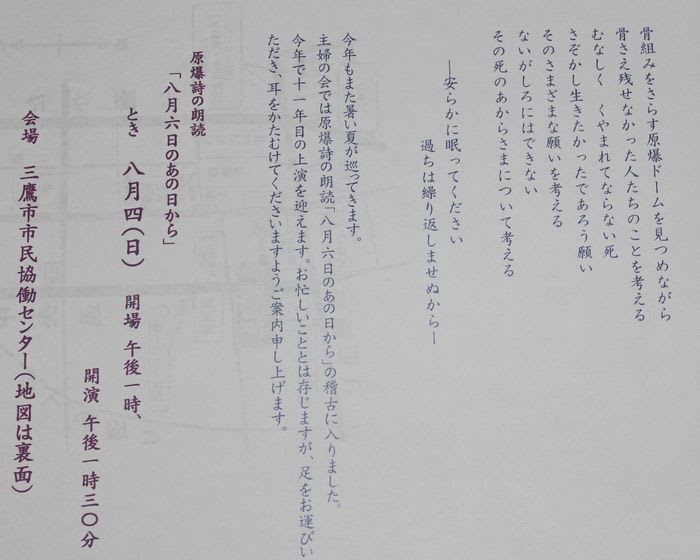 骨組みをさらす原爆ドームを見つめながら
骨さえ残せなかった人たちのことを考える
むなしく　くやまれてならない死
さぞかし生きたかったであろう願い
そのさまざまな願いを考える
ないがしろにはできない
その死のあからさまについて考える
―安らかに眠ってください
過ちは繰り返しませぬから―
今年もまた暑い夏が巡ってきます。
主婦の会では原爆詩の朗読「八月六日のあの日から」の稽古に入りました。
今年で十一年目の上演を迎えます。お忙しいこととは存じますが、足をお運びい
ただき、耳をかたむけてくださいますようご案内申し上げます。
原爆詩の朗読
「八月六日のあの日から」
とき　八月四(日)　開場 午後一時、
開演 午後一時三〇分
会場　三鷹市市民協働センター(地図は裏面)